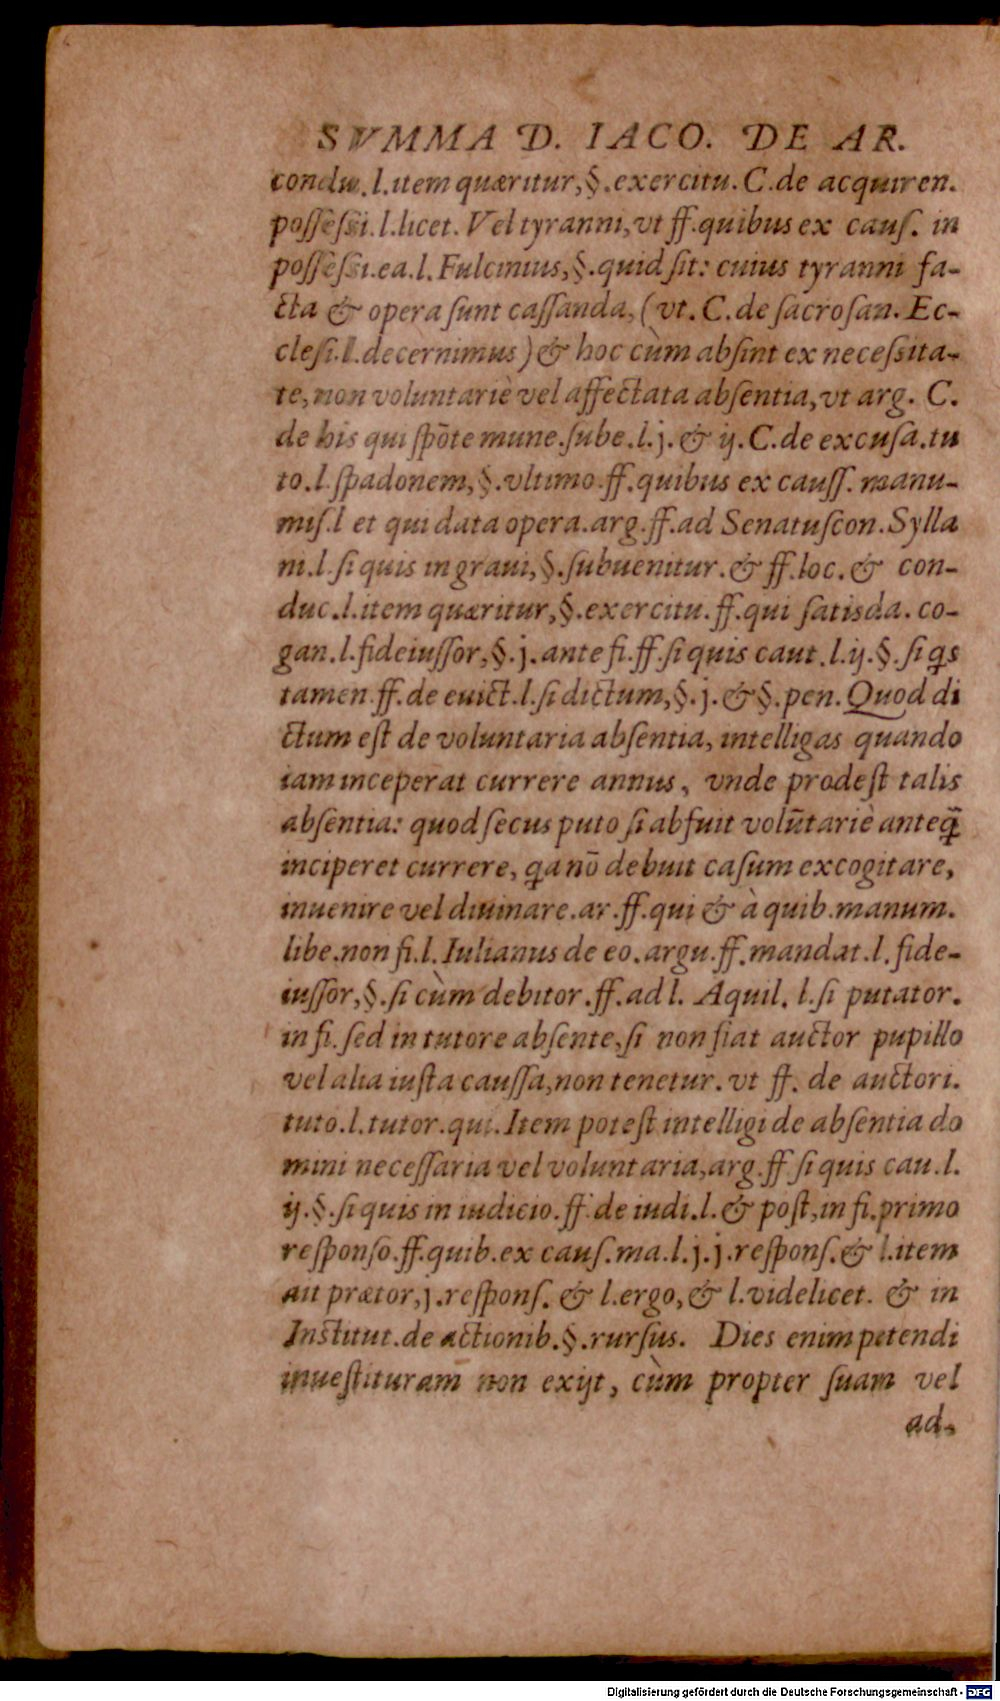 SVMMA D. IACO. DE AR.
condu. l. item quæritur, §. exercitu. C. de acquiren.
possessi. l. licet. Vel tyranni, vt ff. quibus ex caus. in
possessi. ea. l. Fulcinius, §. quid sit: cuius tyranni fa-
cta & opera sunt cassanda, (vt. C. de sacrosan. Ec-
clesi. l. decernimus) & hoc cùm absint ex necessita-
te, non voluntariè vel affectata absentia, vt arg. C.
de his qui spōte mune. sube. l. j. & ij. C. de excusa. tu
to. l. spadonem, §. vltimo. ff. quibus ex causs. manu-
mis. l et qui data opera. arg. ff. ad Senatuscon. Sylla
ni. l. si quis in graui, §. subuenitur. & ff. loc. & con-
duc. l. item quæritur, §. exercitu. ff. qui satisda. co-
gan. l. fideiussor, §. j. ante fi. ff. si quis caut. l. ij. §. si q̃s
tamen. ff. de euict. l. si dictum, §. j. & §. pen. Quod di
ctum est de voluntaria absentia, intelligas quando
iam inceperat currere annus, vnde prodest talis
absentia: quod secus puto si abfuit volũtariè anteq̃
inciperet currere, q̃a nō debuit casum excogitare,
inuenire vel diuinare. ar. ff. qui & à quib. manum.
libe. non fi. l. Iulianus de eo. argu. ff. mandat. l. fide-
iussor, §. si cùm debitor. ff. ad l. Aquil. l. si putator.
in fi. sed in tutore absente, si non fiat auctor pupillo
vel alia iusta caussa, non tenetur. vt ff. de auctori.
tuto. l. tutor. qui. Item potest intelligi de absentia do
mini necessaria vel voluntaria, arg. ff si quis cau. l.
ij. §. si quis in iudicio. ff. de iudi. l. & post, in fi. primo
responso. ff. quib. ex caus. ma. l. j. j. respons. & l. item
ait prætor, j. respons. & l. ergo, & l. videlicet. & in
Institut. de actionib. §. rursus. Dies enim petendi
inuestituram non exijt, cùm propter suam vel
ad-
Digitalisierung gefördert durch die Deutsche Forschungsgemeinschaft - DFG